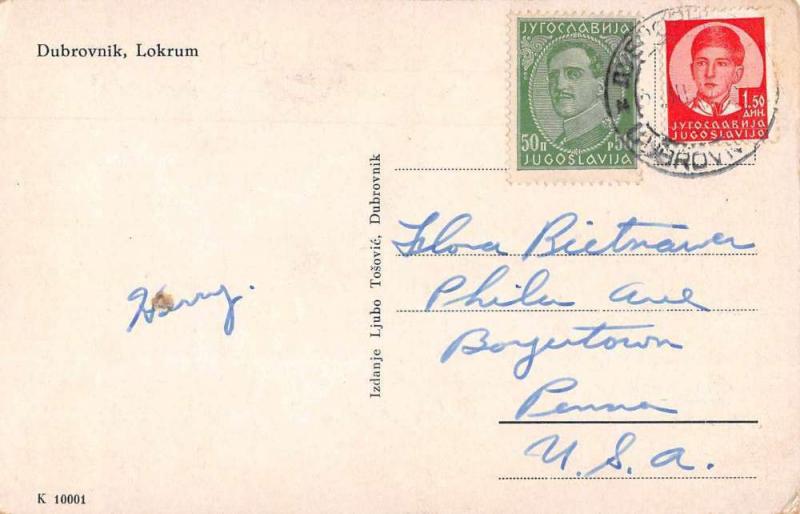 Dubrovnik, Lokrum
ЈУГОСЛАВИЈА
50 П P 50
JUGOSLAVIJA
1.50
ДИН.
ЈУГОСЛАВИЈА
JUGOSLAVIJA
DUBROVN
Izdanje Ljubo Tošović, Dubrovnik
Harry.
Flora Bietnawer
Phila Ave
Boyertown
Penna
U. S. A.
K 10001